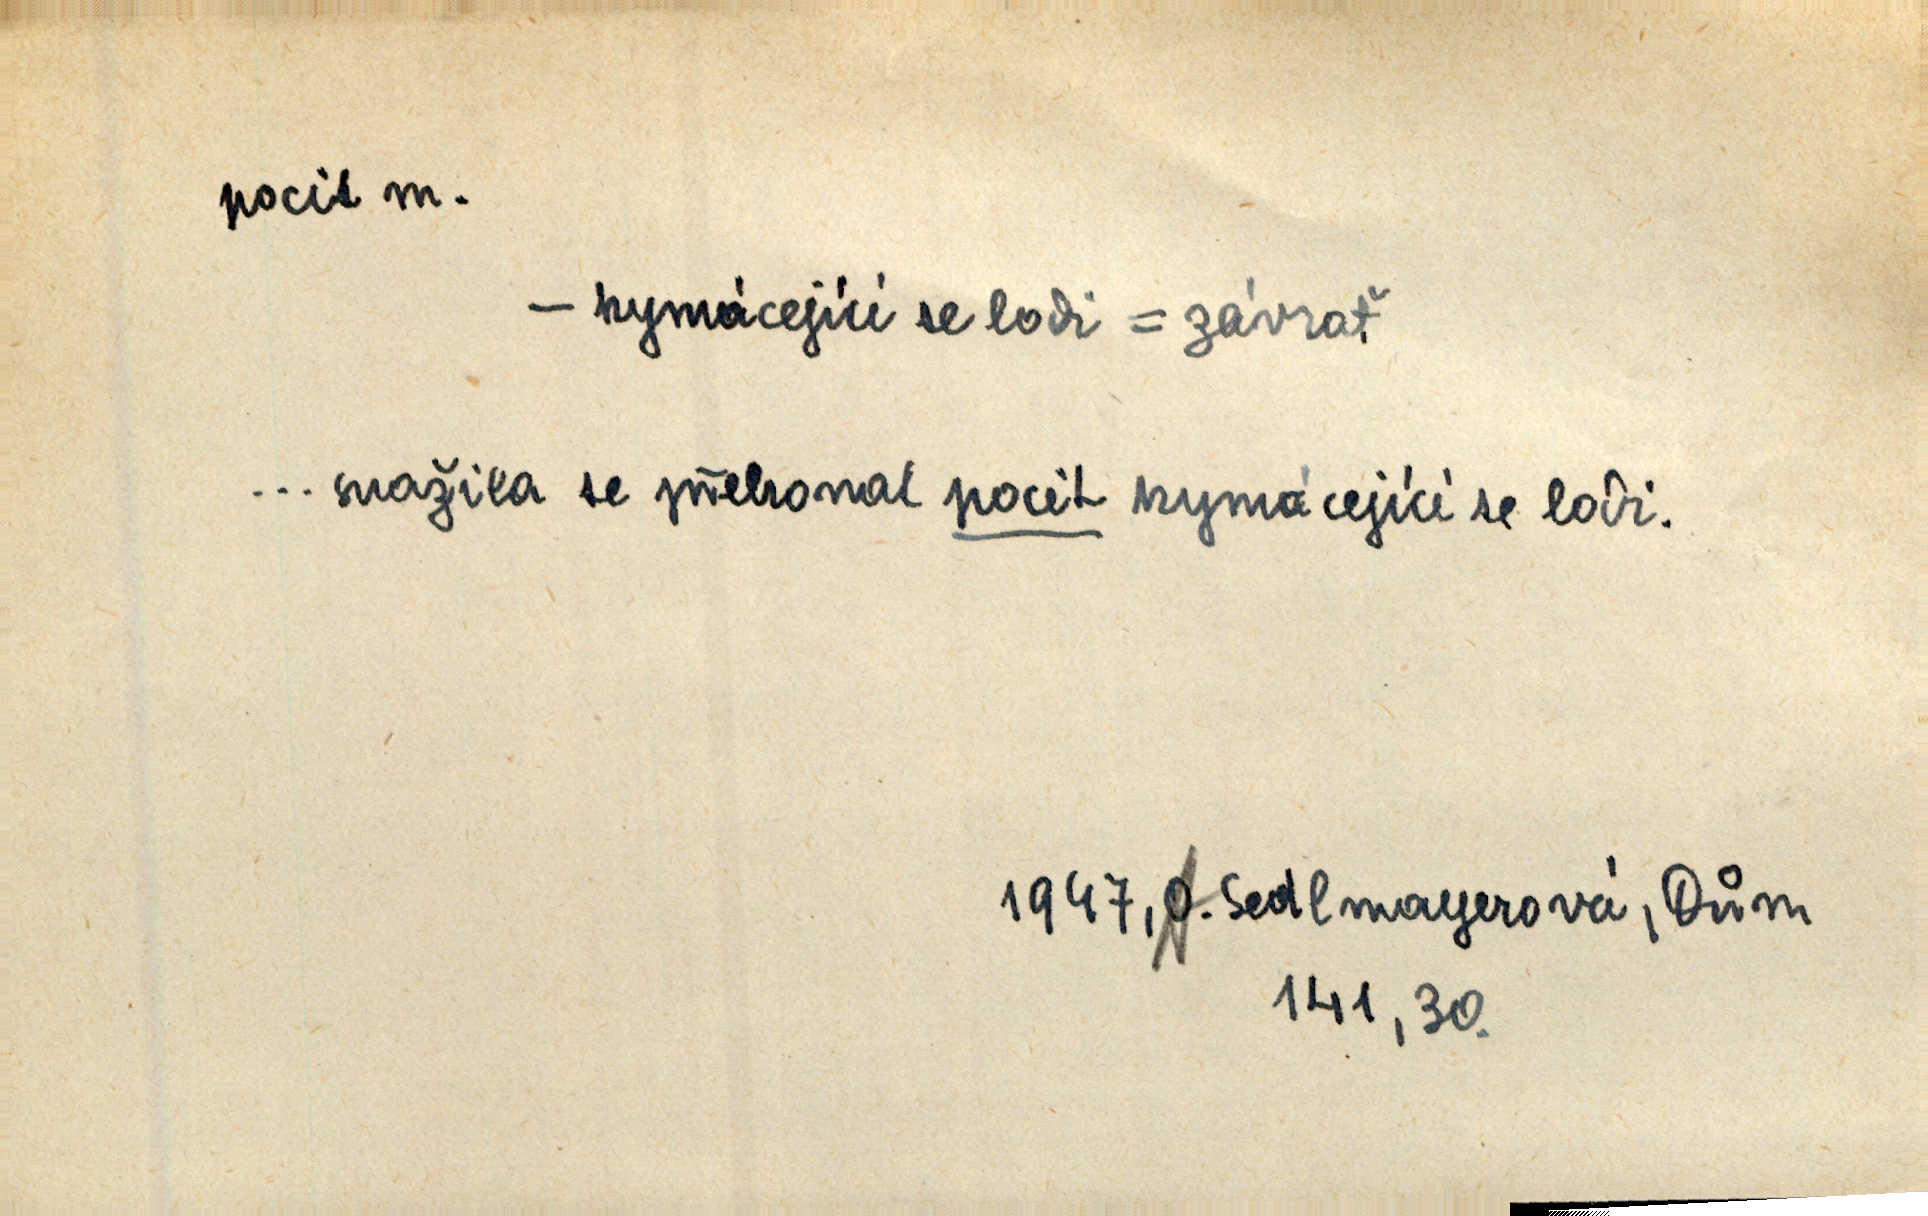 pocit m.
– kymácející se lodi = závrať
... snažila se překonat pocit kymácející se lodi.
1947, A. Sedlmayerová, Dům
141, 30.